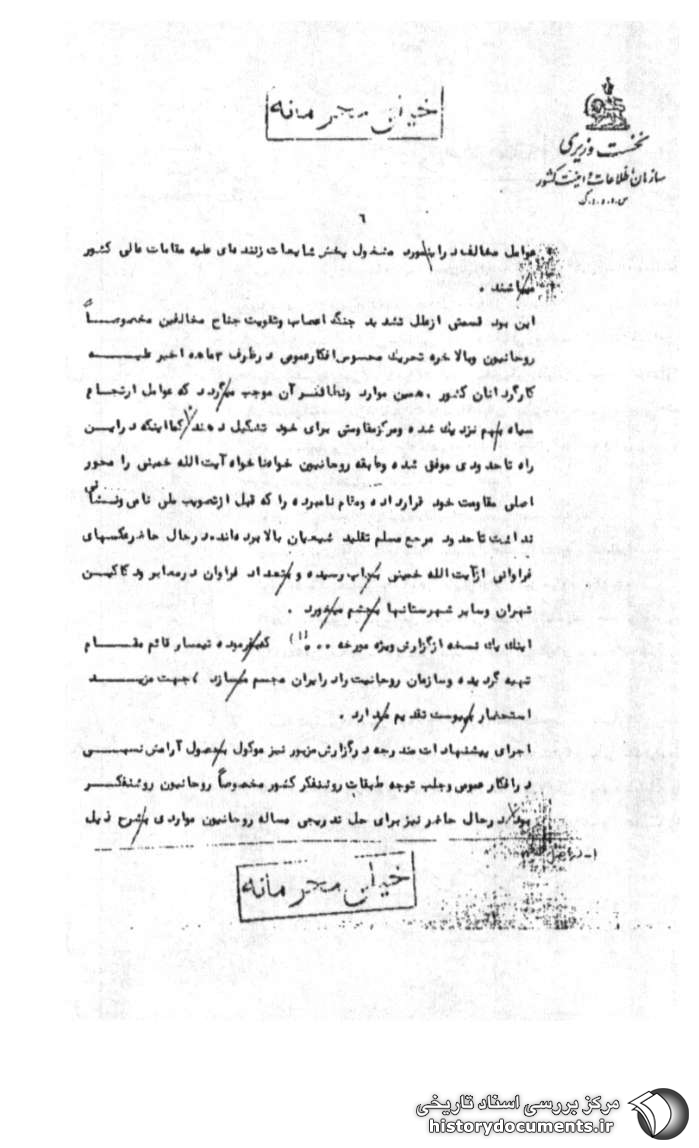 خیلی محرمانه
نخست وزیری
سازمان اطلاعات و امنیت کشور
س.ا.و.ا.ک
٦
عوامل مخالف در اینمورد مشغول پخش شایعات زننده‌ای علیه مقامات عالی کشور
میباشند .
این بود قسمتی از علل تشدید جنگ اعصاب وتقویت جناح مخالفین مخصوصاً
روحانیون وبالاخره تحریک محسوس افکار عمومی در ظرف ٣ماهه اخیر علیه
کارگردانان کشور . همین موارد ونظائر آن موجب میگردد که عوامل ارتجاع
سیاه بهم نزدیک شده ومرکز مقاومتی برای خود تشکیل دهند کمااینکه در این
راه تا حدودی موفق شده وطبقه روحانیون خواه‌ناخواه آیت الله خمینی را محور
اصلی مقاومت خود قرار داده ومقام نامبرده را که قبل از تصویب ملی نامی ونشانی
نداشت تا حدود مرجع مسلم تقلید شیعیان بالا برده‌اند. در حال حاضر عکسهای
فراوانی از آیت الله خمینی بچاپ رسیده و بتعداد فراوان در معابر و دکاکین
تهران وسایر شهرستانها بچشم میخورد .
اینک یک نسخه از گزارش ویژه مورخه ۰۰ (١) که بفرموده تیمسار قائم مقام
تهیه گردیده وسازمان روحانیت را در ایران مجسم میسازد ، جهت مزید
استحضار بپیوست تقدیم میدارد .
اجرای پیشنهادات مندرجه در گزارش مزبور نیز موکول بحصول آرامش نسبی
در افکار عمومی وجلب توجه طبقات روشنفکر کشور مخصوصاً روحانیون روشنفکر
بوده در حال حاضر نیز برای حل تدریجی مساله روحانیون مواردی بشرح ذیل
خیلی محرمانه
مرکز بررسی اسناد تاریخی
historydocuments.ir